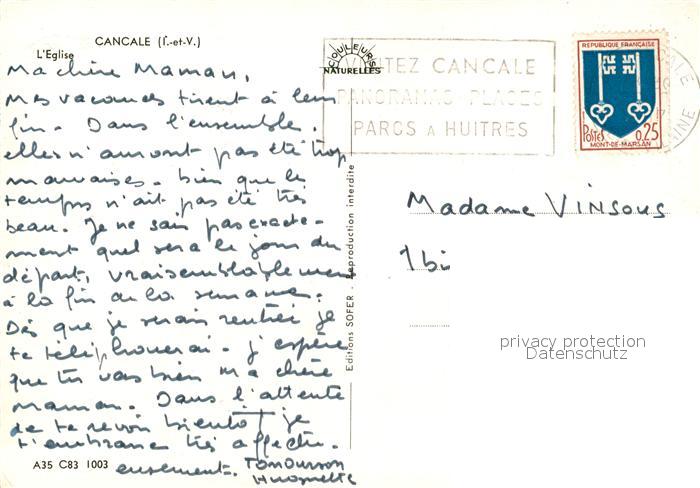 CANCALE (I.-et-V.)
L'Eglise
Ma chère Maman,
Mes vacances tirent à leur
fin. Dans l'ensemble,
elles n'auront pas été trop
mauvaises. bien que le
temps n'ait pas été très
beau. Je ne sais pas exacte-
ment quel sera le jour du
départ, vraisemblablement
à la fin de la semaine.
Dès que je serai rentrée je
te téléphonerai. j'espère
que tu vas bien ma chère
maman. Dans l'attente
de te revoir bientôt je
t'embrasse très affectu-
eusement.
Huguette
A35 C83 1003
Editions SOFER - Reproduction interdite
COULEURS
NATURELLES
VISITEZ CANCALE
PANORAMAS PLAGES
PARCS A HUITRES
REPUBLIQUE FRANÇAISE
POSTES 0,25
MONT-DE-MARSAN
Madame VINSOUS
1 bi
privacy protection
Datenschutz